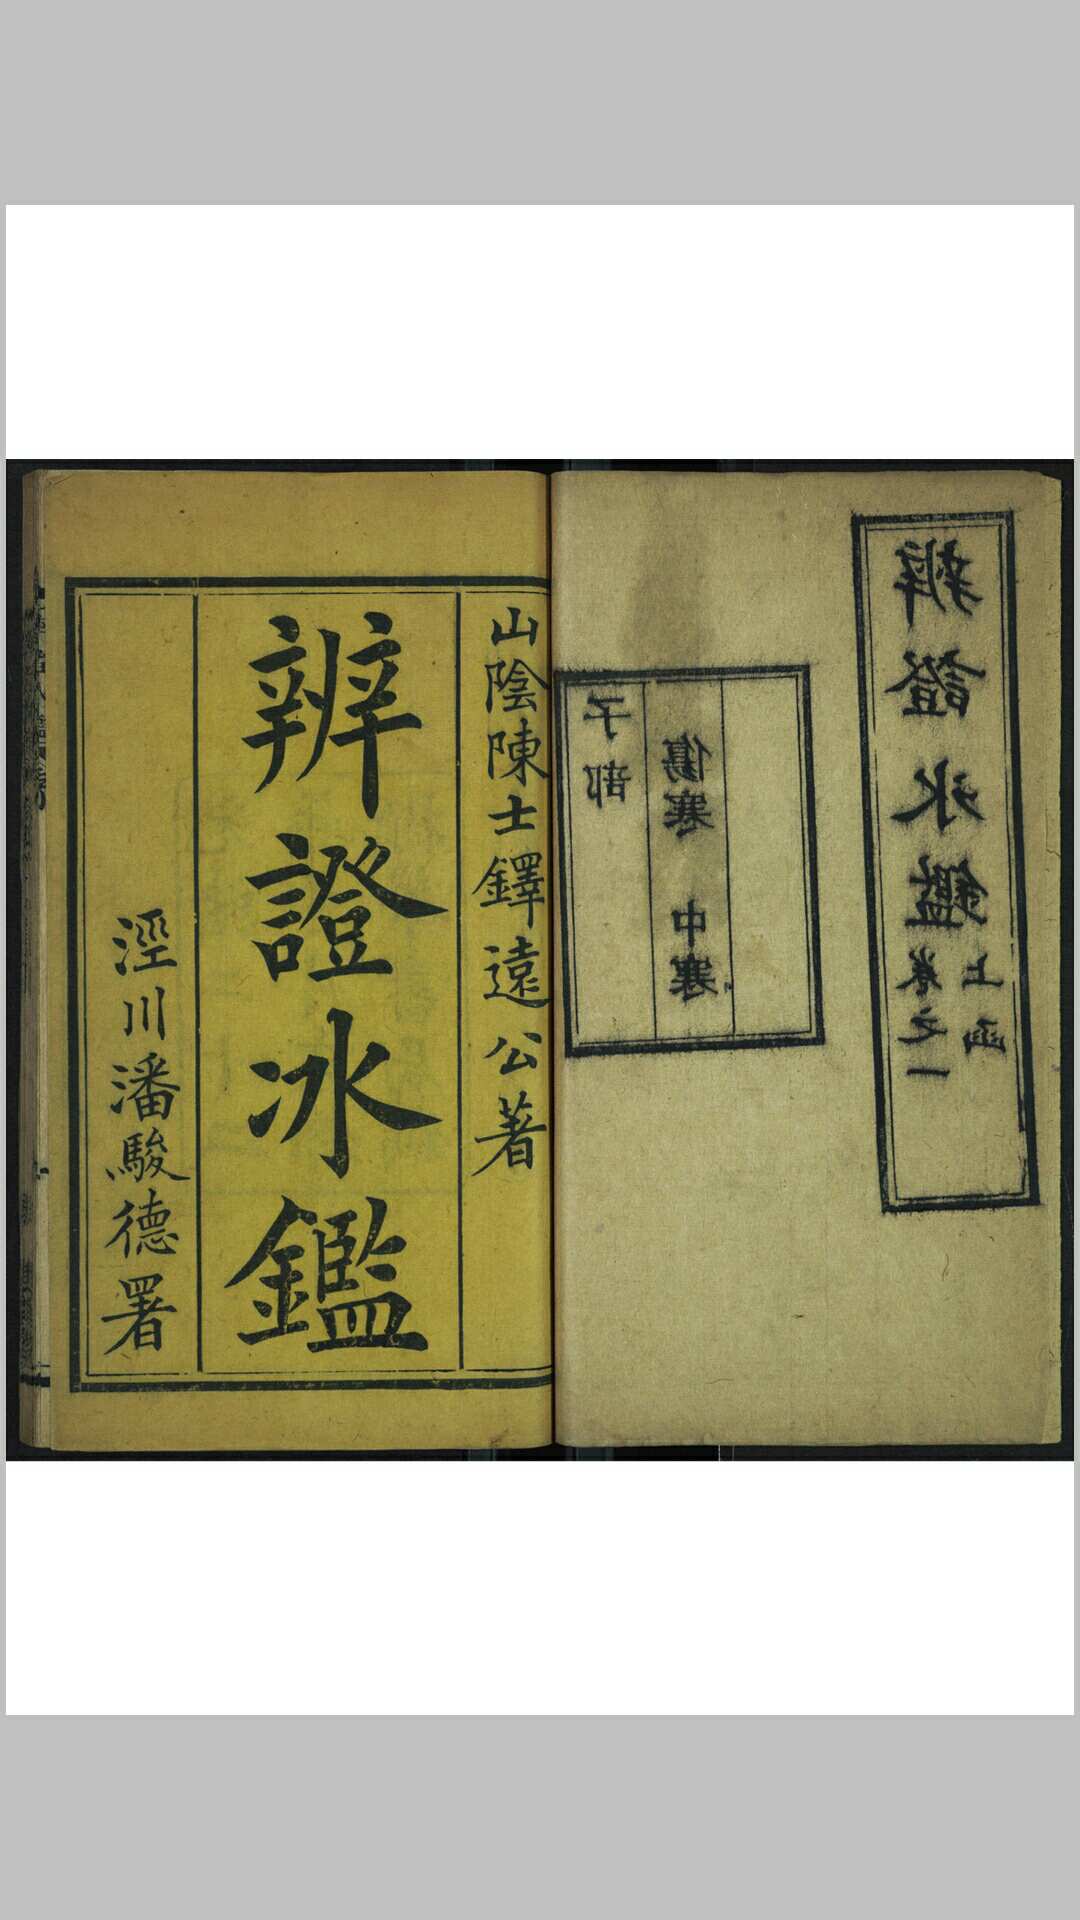 辨證冰鑑
上函
卷之一
傷寒 中寒
子部
山陰陳士鐸遠公著
辨證冰鑑
涇川潘駿德署